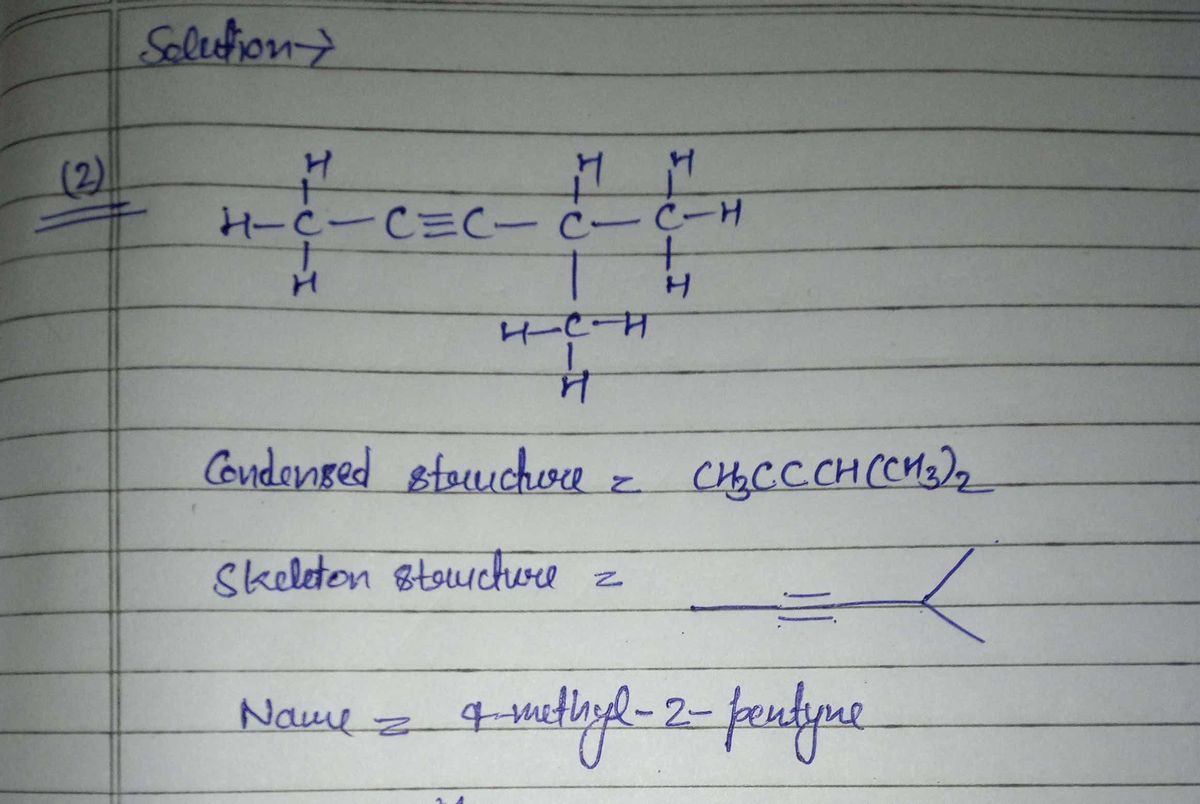 Solution→
(2)
H H H
H-C-C≡C-C-C-H
H H
H-C-H
H
Condensed structure = CH3CCCH(CH3)2
Skeleton structure =
Name = 4-methyl-2-pentyne